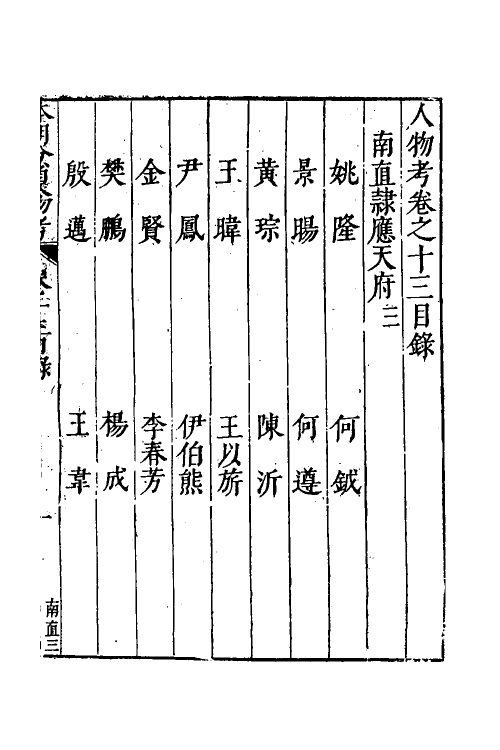 人物考卷之十三目錄
南直隸應天府三
姚隆 何鉞
景暘 何遵
黃琮 陳沂
王暐 王以旂
尹鳳 伊伯熊
金賢 李春芳
樊鵬 楊成
殷邁 王韋
本朝分省人物考 卷之十三目錄 一 南直三